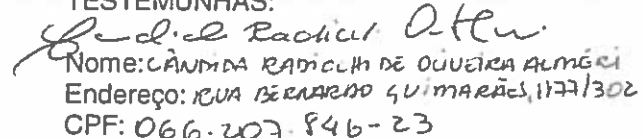 TESTEMUNHAS:
Nome: CÂNDIDA RADICCHI DE OLIVEIRA ALMÉRI
Endereço: RUA BERNARDO GUIMARÃES, 1177/302
CPF: 066.207.846-23